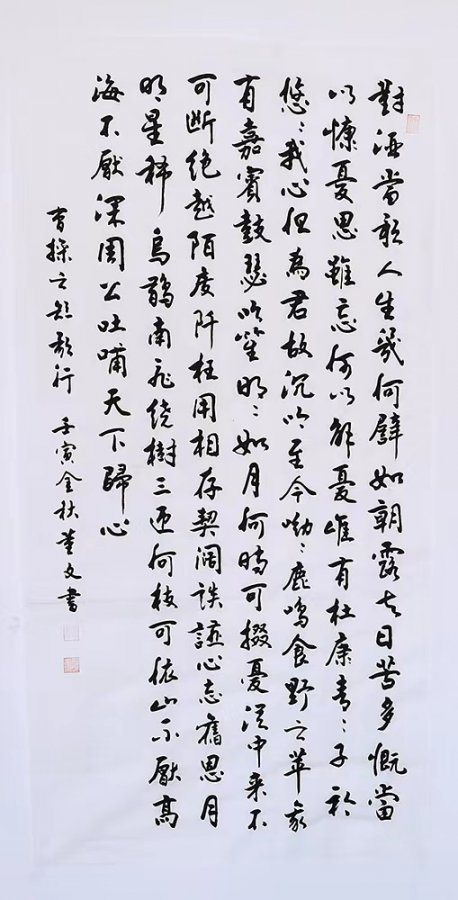 對酒當歌人生幾何譬如朝露去日苦多慨當
以慷憂思難忘何以解憂唯有杜康青々子衿
悠々我心但為君故沉吟至今呦々鹿鳴食野之苹我
有嘉賓鼓瑟吹笙明々如月何時可掇憂從中来不
可断绝越陌度阡枉用相存契阔談讌心念舊恩月
明星稀烏鵲南飛绕樹三匝何枝可依山不厭高
海不厭深周公吐哺天下歸心
曹操之短歌行 壬寅金秋董文書